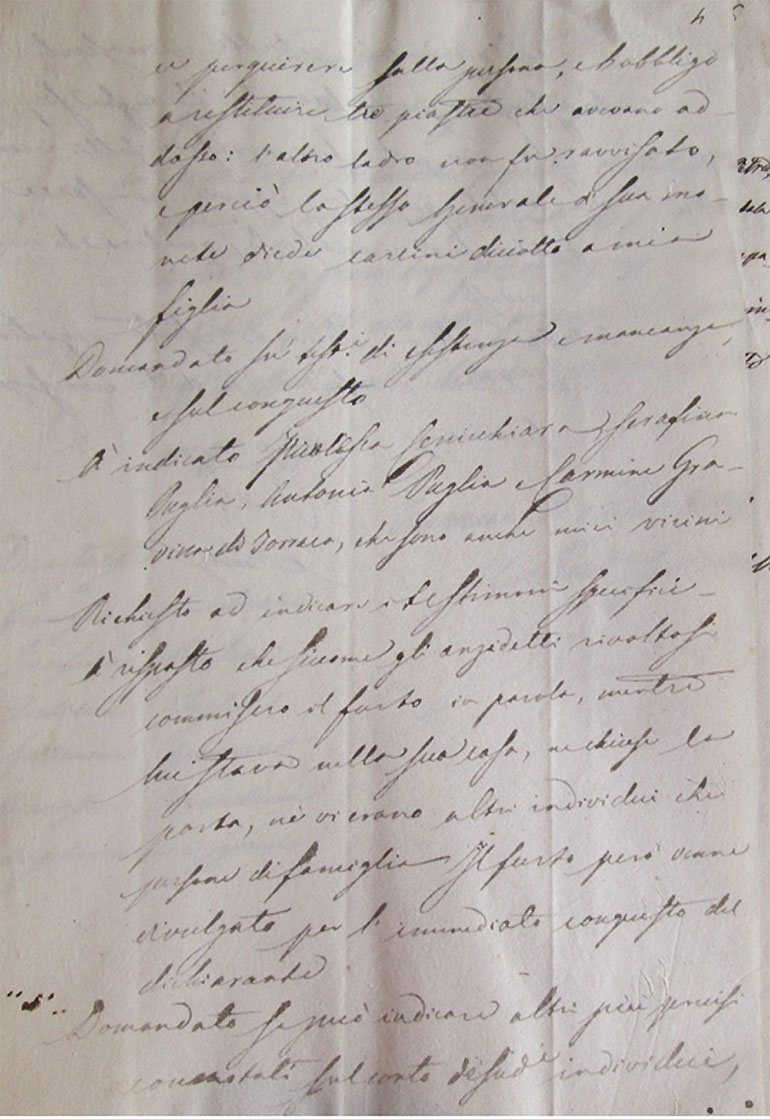 e perquirere sulla persona, e l'obbligò
a restituire tre piastre che avevano ad-
dosso: l'altro ladro non fu ravvisato,
e perciò lo stesso Generale di sua mo-
neta diede carlini diciotto a mia
figlia
Domandato su' test.i di esistenza e mancanza,
e sul conquesto
À indicato Scricchiara, Serafina
Puglia, Antonia Puglia e Carmine Gra-
vina di Torraca, che sono anche miei vicini
Richiesto ad indicare i testimoni specifici-
À risposto che siccome gli anzidetti rivoltosi
commisero il furto in parola, mentre
lui stava nella sua casa, ne chiuse la
porta, nè vi erano altri individui che
persone di famiglia Il furto però venne
divulgato per l'immediato conquesto del
dichiarante
Domandato se può indicare altri più precisi
connotati sul conto de' sud.i individui,